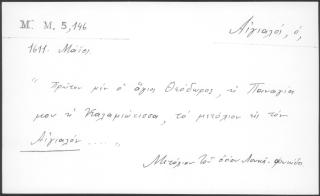 Μ. Μ. 5,146
Αἰγιαλοί, ὁ,
1611. Μαΐοι
"Πρῶτον μὲν ὁ ἅγιος Θεόδωρος, ἡ Παναγία
μου ἡ Καλαμιώτισσα, τὸ μετόχιον εἰς τὸν
Αἰγιαλόν .... "
Μετόχιον τοῦ ὁσίου Λουκᾶ